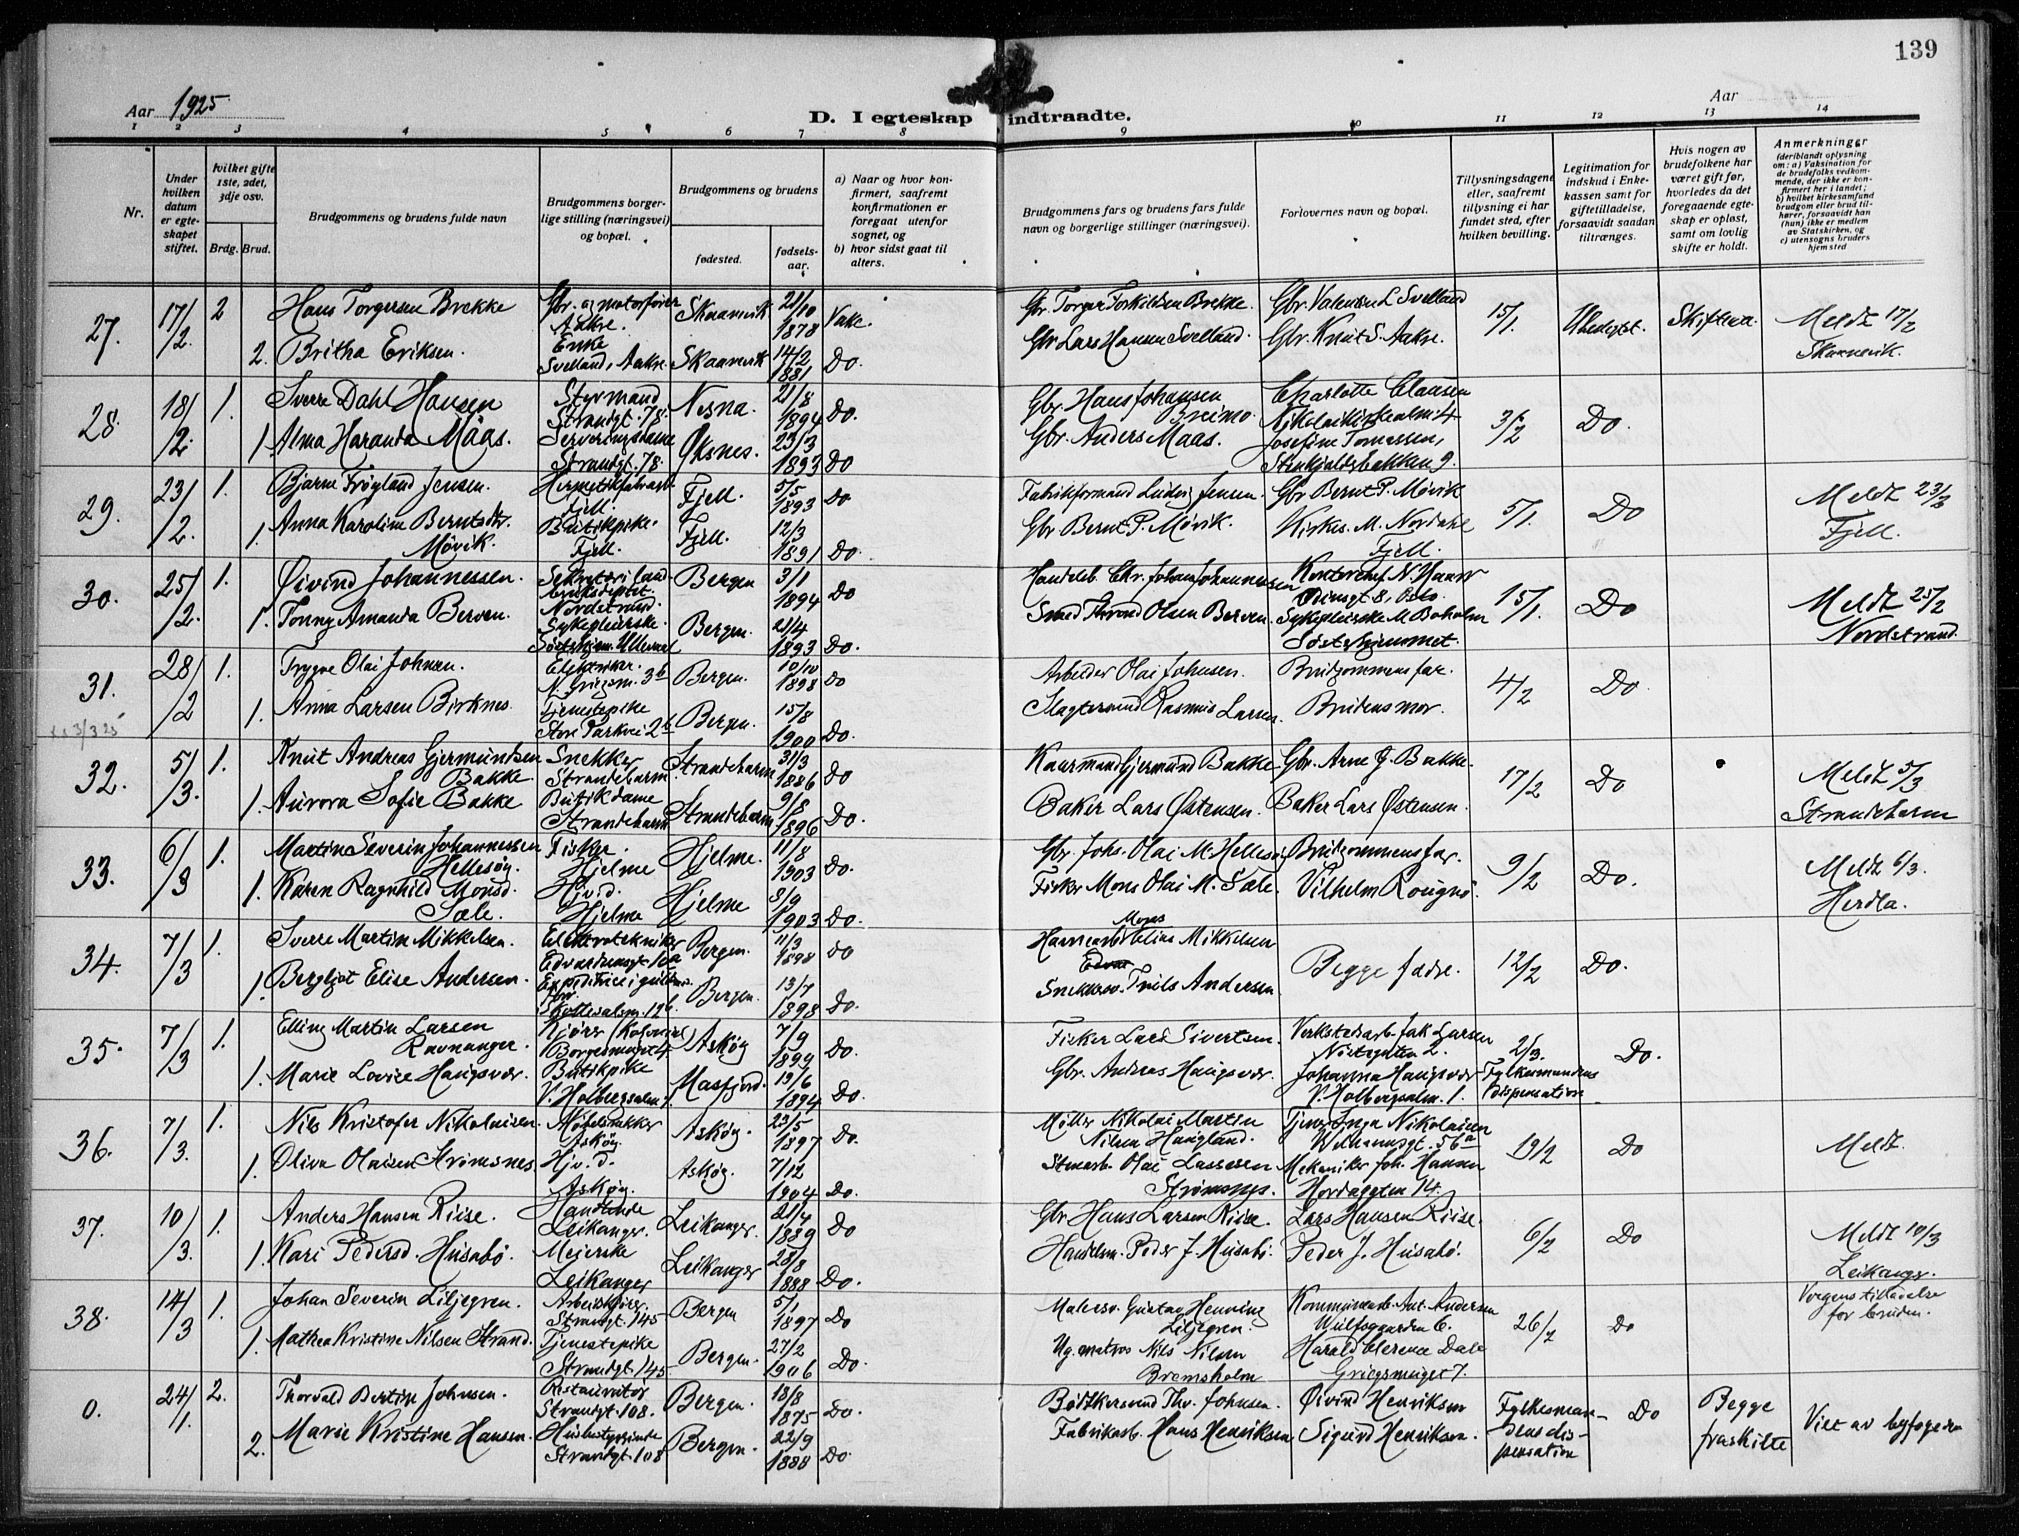 139
Aar 1925
Aar
D. I egteskap indtraadte.
1 2 3 4 5 6 7 8 9 10 11 12 13 14
Nr.
Under hvilken datum er egteskapet stiftet.
hvilket gifte 1ste, 2det, 3dje osv.
Brdg. Brud.
Brudgommens og brudens fulde navn
Brudgommens borgerlige stilling (næringsvei) og bopæl.
Brudgommens og brudens
fødested.
fødselsaar.
a) Naar og hvor konfirmert, saafremt konfirmationen er foregaat utenfor sognet, og
b) hvor sidst gaat til alters.
Brudgommens fars og brudens fars fulde navn og borgerlige stillinger (næringsvei).
Forlovernes navn og bopæl.
Tillysningsdagene eller, saafremt tillysning ei har fundet sted, efter hvilken bevilling.
Legitimation for indskud i Enkekassen samt for giftetilladelse, forsaavidt saadan tiltrænges.
Hvis nogen av brudefolkene har været gift før, hvorledes da det foregaaende egteskap er opløst, samt om lovlig skifte er holdt.
Anmerkninger (deriblandt oplysning om: a) Vaksination for de brudefolks vedkommende, der ikke er konfirmert her i landet; b) hvilket kirkesamfund brudgom eller brud tilhører, forsaavidt han (hun) ikke er medlem av Statskirken, og c) utensogns bruders hjemsted
27. 17/2 2 Hans Torgersen Brekke Gbr. og motorfører Aakre. Skaanevik 21/10 1878 Vake. Gbr Torger Torkildsen Brekke. Gbr. Valentin L Svelland 15/1. Ubesigtet. Meldt 17/2 Skaanevik.
2. Britha Eriksen. Enke Svelland, Aakre Skaanevik 14/2 1881 Do. Gbr Lars Hansen Svelland. Gbr. Knut S. Aakre.
28. 18/2 1. Sverre Dahl Hansen Styrmand Strandgt. 78. Nesna. 21/8 1894 Do. Gbr. Hans Johansen Breimo. Charlotte Clausen Nikolaikirkealm. 4 3/2 Do.
1. Alma Haranda Maas. Serveringsdame Strandgt. 78. Øksnes. 23/3 1893 Do Gbr. Anders Maas. Josefine Tomassen, Stenkjeldsbakken 9.
29. 23/2. 1. Bjarne Frøyland Jensen. Hermetikfabrarb. Fjell. Fjell. 5/5 1893 Do Fabrikformand Ludvig Jensen. Gbr Bernt P. Møvik 5/1. Do Meldt 23/2 Fjell.
1. Anna Karoline Berntsdtr. Møvik. Butikpike. Fjell. Fjell. 12/3 1891 Do. Gbr Bernt P. Møvik. Kirkes. M. Nordahl Fjell.
30. 25/2. 1. Øivind Johannessen. Sekretær i landbruksdeptet. Nordstrand. Bergen 3/1 1894 Do Handelsb. Chr. Johan Johannessen Kontorchef N. Odinsgt 8, Oslo. 15/1. Do Meldt 25/2 Nordstrand.
1. Tonny Amanda Berven. Sykepleierske. Søsterhjem. Ullevaal Bergen. 21/4 1893 Do. Smed Thrond Olsen Berven. Sykepleierske M Boholm Søsterhjemmet.
31. 28/2 1. Trygve Olai Johnsen. Elektriker. N. Griegsm. 3b Bergen. 10/10 1898 Do Arbeider Olai Johnsen. Brudgommens far. 4/2 Do
3/3 25
1. Anna Larsen Birknes. Tjenestepike Store Parkvei 2b Bergen. 15/8 1900 Do. Slagtersvend Rasmus Larsen Brudens mor.
32. 5/3. 1. Knut Andreas Gjermundsen Bakke. Snekker Strandebarm Strandebarm 31/3 1886 Do Kaarmand Gjermund Bakke Gbr. Arne G. Bakke. 17/2 Do Meldt 5/3 Strandebarm
1. Aurora Sofie Bakke Butikdame Strandebarm Strandebarm 9/8 1896 Do. Baker Lars Østensen. Baker Lars Østensen.
33. 6/3 1. Martin Severin Johannessen Hellesøy. Fisker. Hjelme Hjelme. 11/8 1903 Do. Gbr. Johs. Olai M. Hellesø. Brudgommens far. 9/2 Do. Meldt 6/3. Herdla.
1. Karen Ragnhild Monsd. Sæle. Hjv. d. Hjelme Hjelme 3/9 1903 Do. Fisker Mons Olai M. Sæle. Vilhelm Rougnø.
34. 7/3 1. Sverre Martin Mikkelsen. Elektrotekniker Edvardsensgt 10a Bergen. 11/3 1898 Do Havnearb. Elias Mons Mikkelsen Begge fædre. 12/2 Do.
1. Bergljot Elise Andersen. Expeditrice i Skottesalm. 19b. Bergen. 13/7 1898 Do Snekkersv. Truls Andersen
35. 7/3 1. Elling Martin Larsen Ravnanger. Kjører (Kolonial) Borgermuget 4. Askøy 7/9 1899 Do. Fisker Lars Sivertsen. Verkstedarb. Jak Larsen Nøstegaten 2. 2/3. Fylkesmandens Dispensation Do.
1. Marie Lovise Haugsvær. Butikpike V. Holbergsalm 1. Masfjord. 19/6 1894 Do. Gbr. Andreas Haugsvær. Johanna Haugsvær V. Holbergsalm. 1.
36. 7/3. 1. Nils Kristofer Nikolaisen. Møbelsnekker Askøy. Askøy. 23/5 1897 Do. Møller Nikolai Martin Nilsen Haugland. Tjener Inga Nikolaisen Welhavensgt. 56a 19/2 Do Meldt.
1. Oliva Olaisen Strømsnes Hjv. d. Askøy. Askøy. 7/12 1904 Do. Stenarb. Olai Lassesen Strømsnes. Mekaniker Joh. Hansen Hordagaten 14.
37. 10/3. 1. Anders Hansen Riise. Handlende Leikanger. Leikanger. 21/4 1889 Do Gbr Hans Larsen Riise. Lars Hansen Riise. 6/2 Do Meldt 10/3 Leikanger.
1. Kari Pedersd. Husabø. Meierske Leikanger Leikanger 28/8 1888 Do. Handelsm. Peder J. Husabø. Peder J. Husabø.
38. 14/3 1. Johan Severin Liljegren. Arbeidskjører. Strandgt. 145 Bergen 5/1 1897 Do Malersv. Gustav Henning Liljegren. Kommunearb. Ant. Andersen Wulfsgaarden 6. 26/2 Do Vergens tilladelse for bruden.
1. Mathea Kristine Nilsen Strand. Tjenestepike Strandgt. 145 Bergen. 27/2 1906 Do. Ug. matros Nils Nilsen Bremsholm Harald Clarence Dale Griegsmuget 7.
0. 24/1. 2. Thorvald Bertin Johnsen. Restauratør Strandgt. 108. Bergen. 18/8 1875 Do. Bødkersvend Thv. Johnsen. Øivind Henriksen Fylkesmandens dispensation Do Begge fraskilte Viet av byfogeden
2. Marie Kristine Hansen. Husbestyrerinde Strandgt. 108 Bergen. 22/9 1888 Do Fabrikarb. Hans Henriksen Sigurd Henriksen.